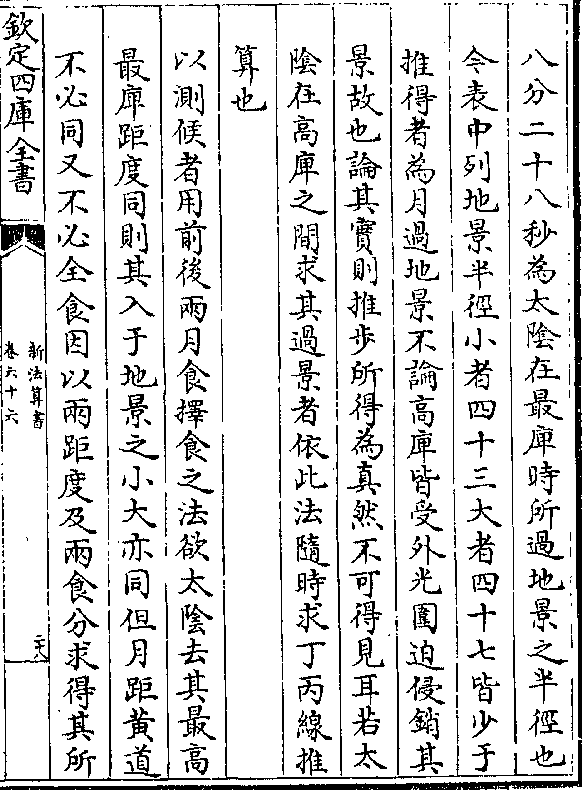 八分二十八秒為太陰在最庳時所過地景之半徑也
今表中列地景半徑小者四十三大者四十七皆少于
推得者為月過地景不論高庳皆受外光圍迫侵銷其
景故也論其實則推步所得為真然不可得見耳若太
陰在高庳之間求其過景者依此法隨時求丁丙線推
算也
以測候者用前後兩月食擇食之法欲太陰去其最高
最庳距度同則其入于地景之小大亦同但月距黃道
不必同又不必全食因以兩距度及兩食分求得其所
欽定四庫全書
新法算書
卷六十六
二十八